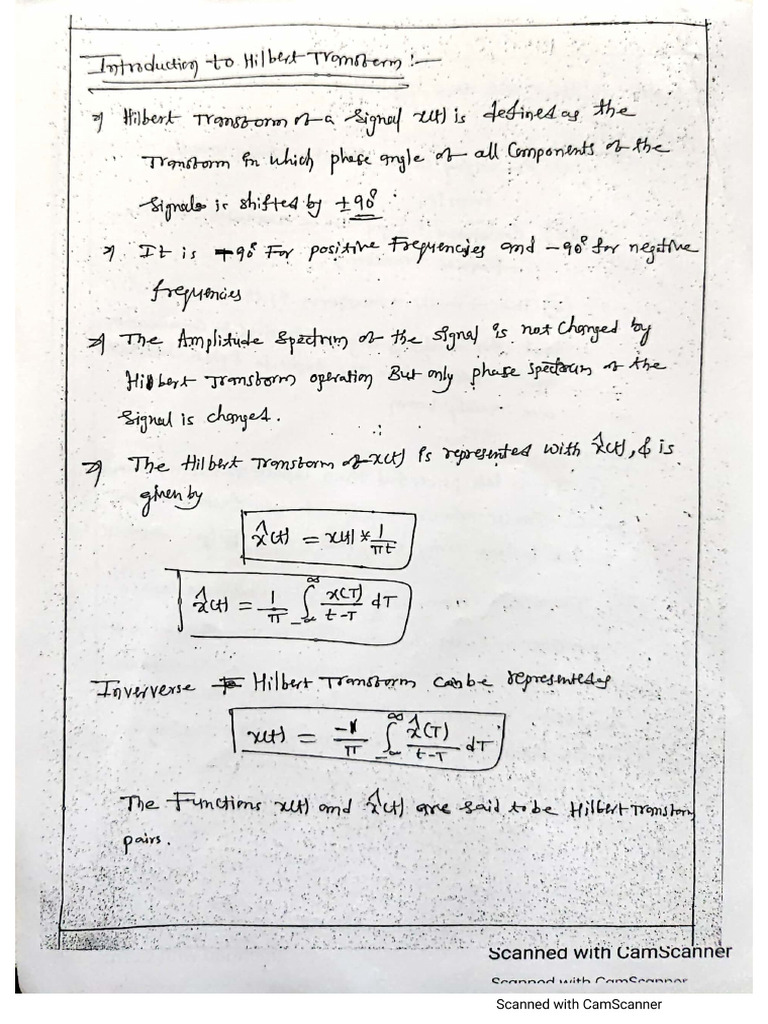 Introduction to Hilbert Transform :—
⇒ Hilbert Transform of a signal x(t) is defined as the
Transform in which phase angle of all Components of the
signals is shifted by ±90°
⇒ It is +90° For positive Frequencies and -90° for negative
frequencies
⇒ The Amplitude spectrum of the signal is not changed by
Hilbert Transform operation But only phase spectrum of the
signal is changed.
⇒ The Hilbert Transform of x(t) is represented with x̂(t), & is
given by
x̂(t) = x(t) * 1/πt
x̂(t) = 1/π ∫_{-∞}^{∞} x(τ)/(t-τ) dτ
Inververse Hilbert Transform can be represented as
x(t) = -1/π ∫_{-∞}^{∞} x̂(τ)/(t-τ) dτ
The Functions x(t) and x̂(t) are said to be Hilbert Transform
pairs.
Scanned with CamScanner
Scanned with CamScanner
Scanned with CamScanner